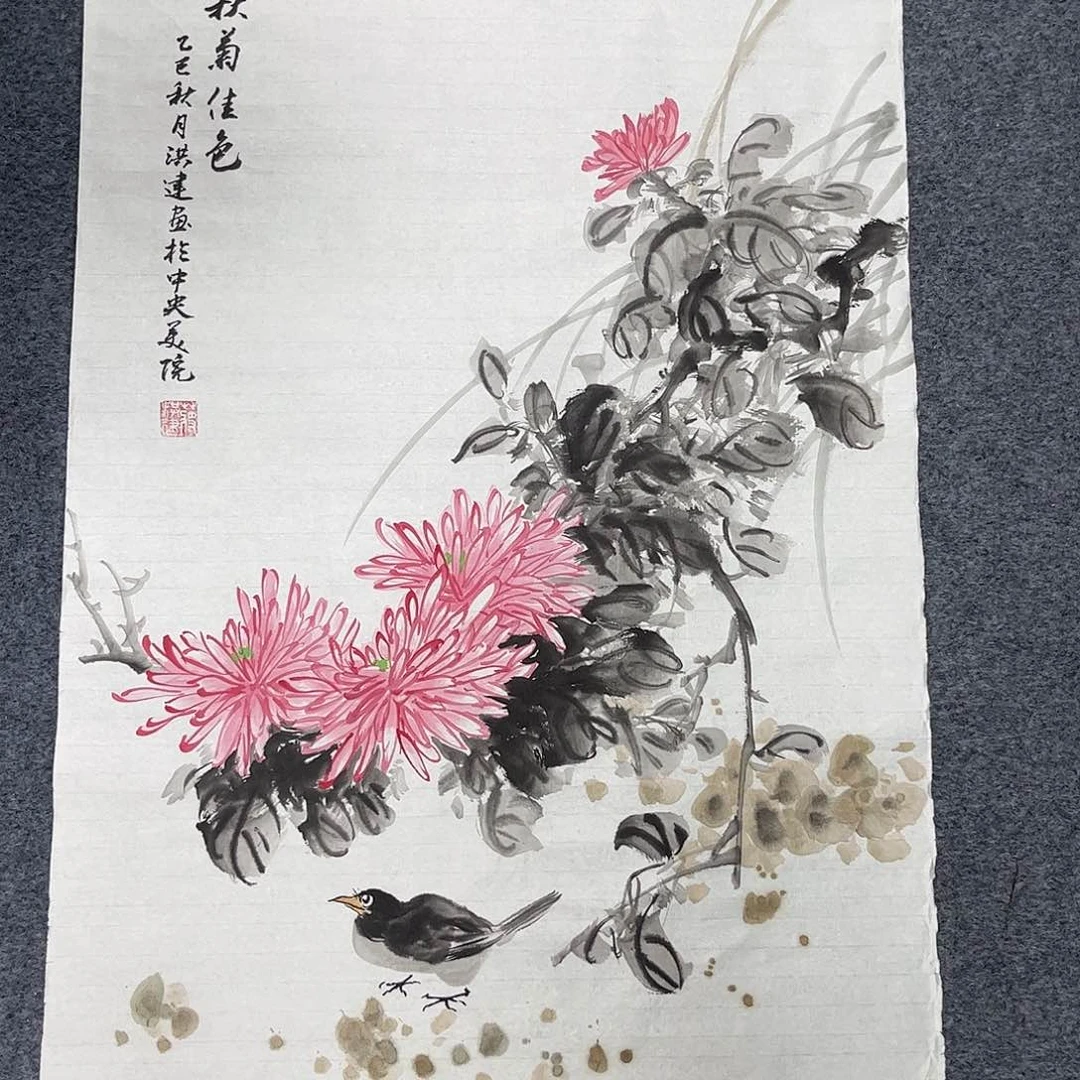 秋菊佳色
乙巳秋月洪建画於中央美院